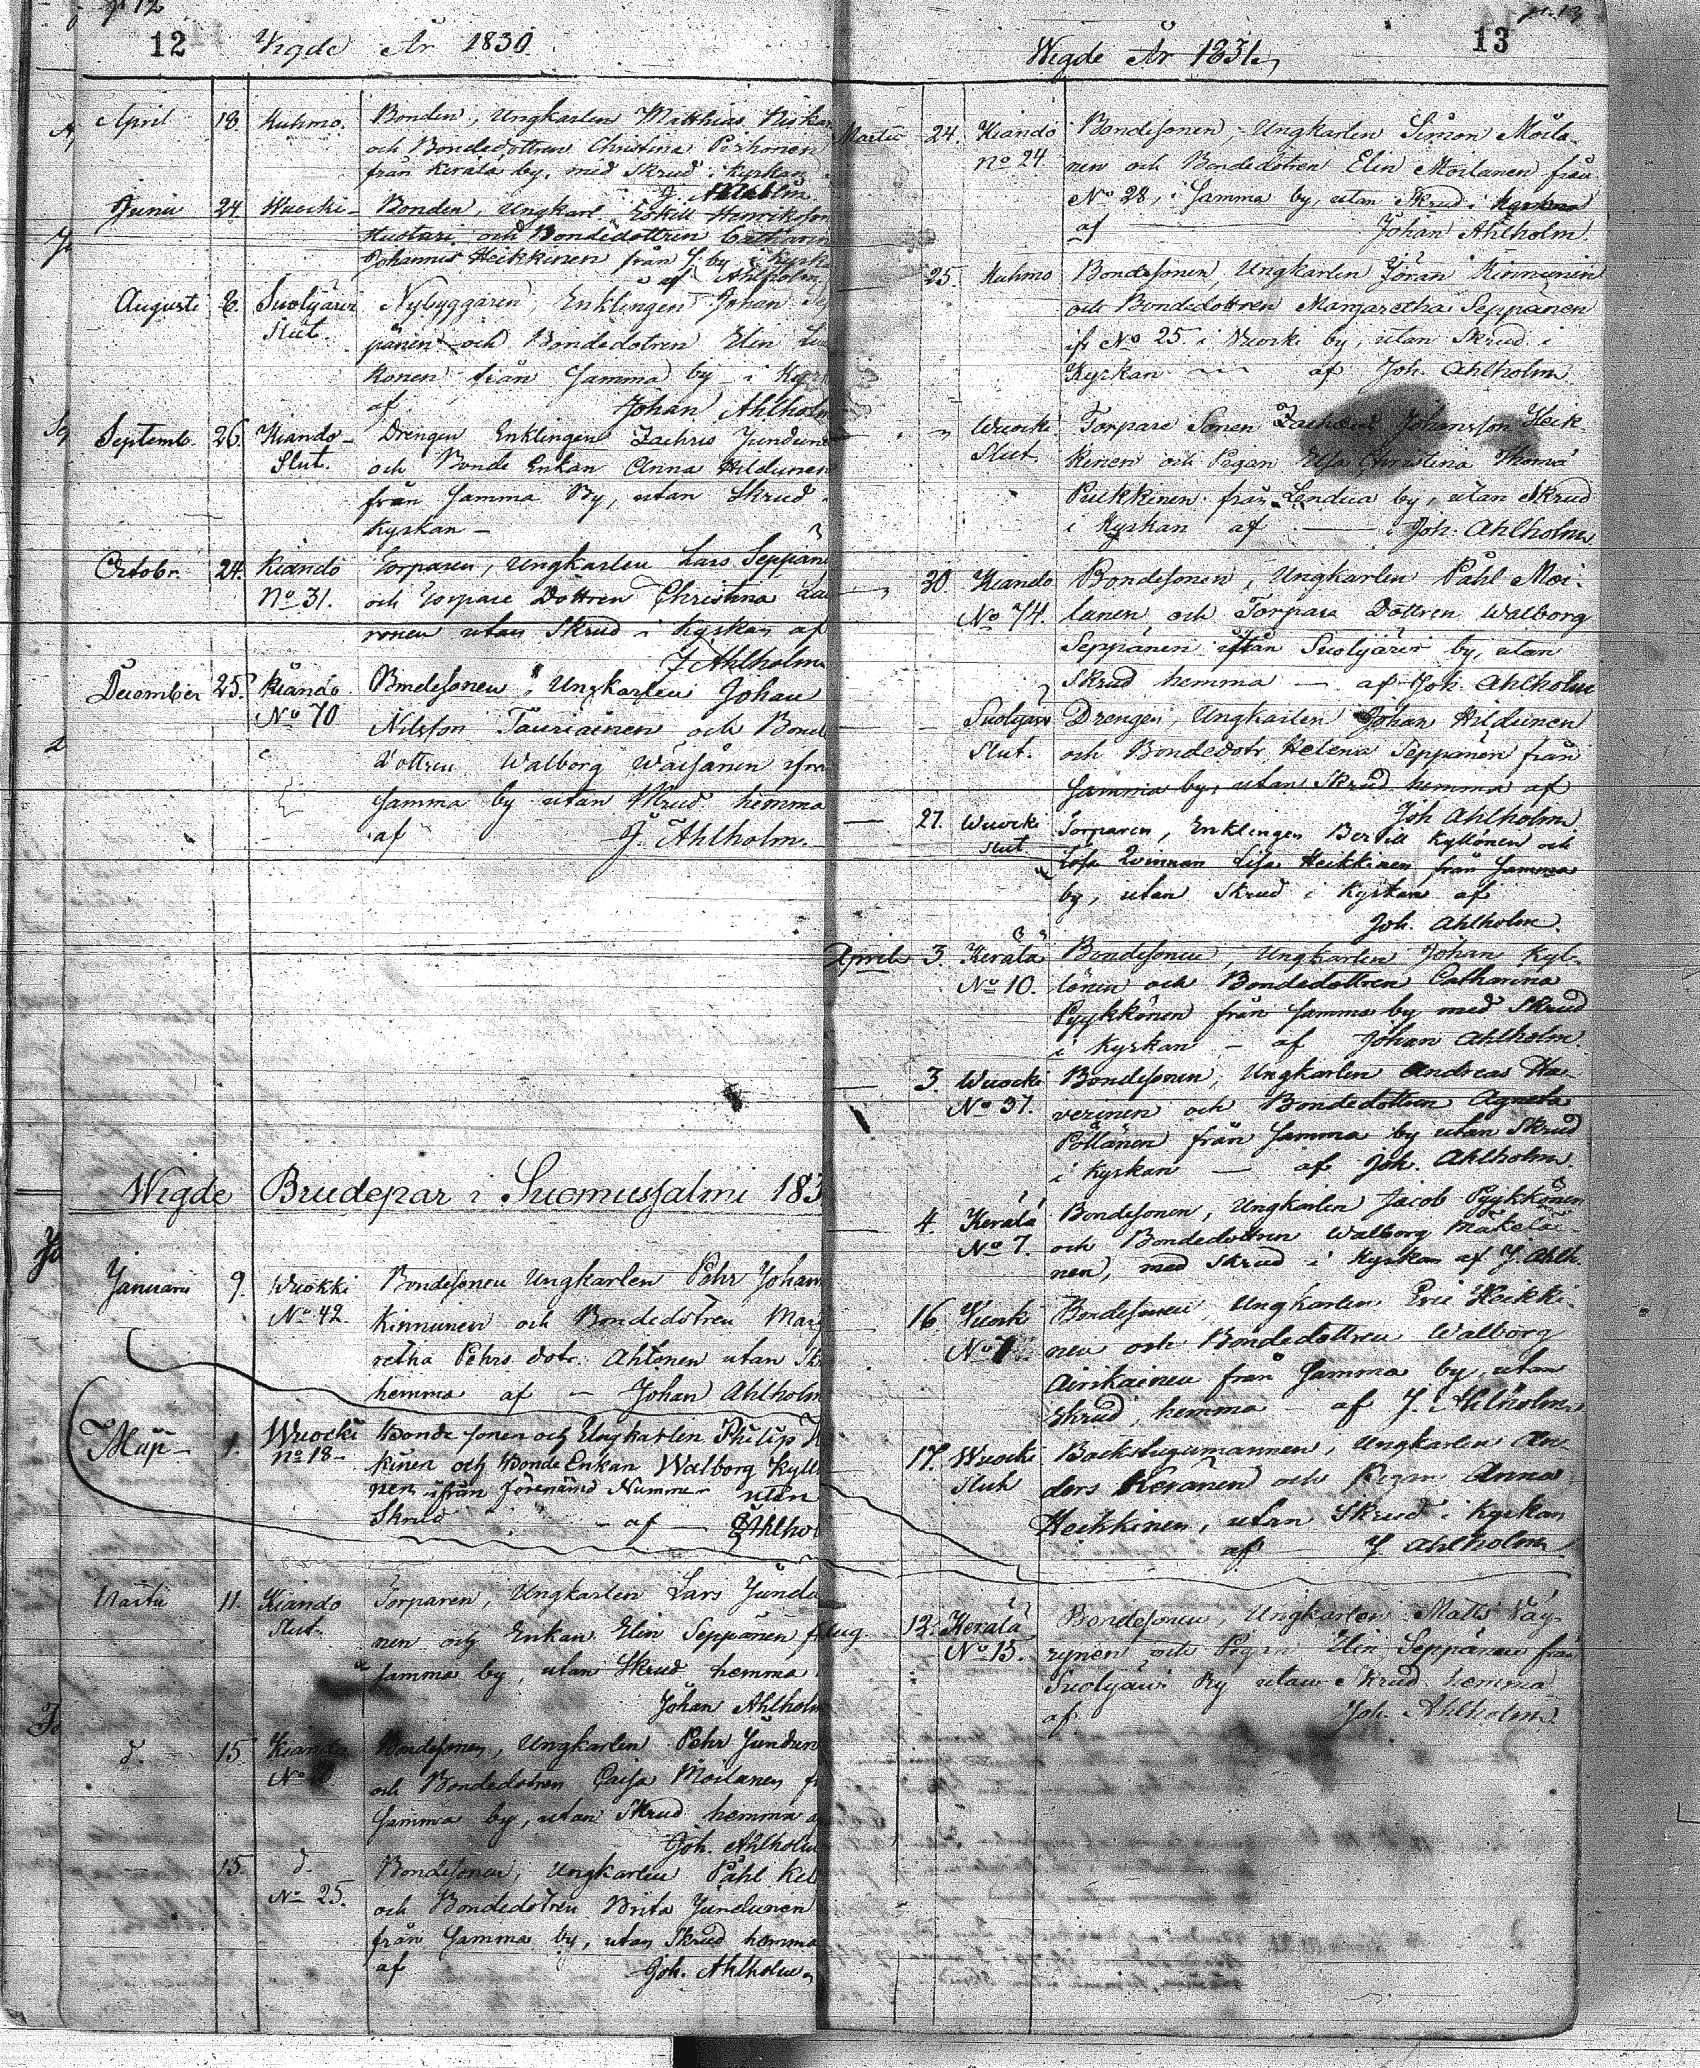 12 Vigde År 1830.
April 18. Kuhmo. Bonden, Ungkarlen Matthias
och Bondedottren Christina Pirhonen
från Kerälä by, med Skrud i Kyrkan
Junii 24 Wuocki Bonden, Ungkarl. Eskill Henriksson
Huoturi och Bondedottren
Johannis Heikkinen från S. by i Kyrka
af Ahlholm
Augusti 8. Suolijärvi Nybyggaren, Enklingen Johan
Slut. pänen och Bondedotren Elin
konen från Samma by i
af Johan Ahlholm
Septemb. 26. Kiando Drengen Enklingen Zachris
Slut. och Bonde Enkan Anna Hildunen
från Samma By, utan Skrud
Kyrkan
Octobr. 24. Kiando Torparen, Ungkarlen Lars
No 31. och Torpare Döttren Christina
ronen utan Skrud i Kyrkan af
J Ahlholm
December 25. Kiando Bondesonen, Ungkarlen Johan
No 70 Nilsson Tauriainen och Bond
dottren Walborg Wäisänen ifrån
Samma by utan Skrud hemma
af J. Ahlholm.
Wigde Brudepar i Suomussalmi 183
Januarii 9. Wuokki Bondesonen Ungkarlen Pehr Johan
No 42. Kinnunen och Bondedotren Mar
retha Pehrs dotr. Ahtonen utan Sk
hemma af Johan Ahlholm
1. Wuocki Bonde sonen och Ungkarlen Philip
no 18 kinen och Bonde Enkan Walborg Kyllö
nen ifrån förenämd Nummer utan
Skrud af Ahlhol
Martii 11. Kiando Torparen, Ungkarlen Lars Jundu
Slut. nen och Enkan Elin Seppänen
Samma by, utan Skrud hemma
Johan Ahlholm
d. 15 Kiando Bondesonen, Ungkarlen Pehr Jundun
No och Bondedotren Caisa Moilanen
Samma by, utan Skrud hemma
Joh. Ahlholm
15. d. Bondesonen, Ungkarlen Påhl
No 25. och Bondedotren Brita Jundunen
från Samma by, utan Skrud hemma
af Joh. Ahlholm
Wigde År 1831. 13
Martii 24. Kiando Bondesonen Ungkarlen Simon Moila-
no 24 nen och Bondedotren Elin Moilanen från
No 28, i Samma by, utan Skrud i Kyrkan
af Johan Ahlholm
25. Kuhmo Bondesonen, Ungkarlen Jöran Kinnunen
och Bondedottren Margaretha Seppänen
ifr No 25 i Wuocki by, utan Skrud i
Kyrkan af Joh. Ahlholm
Wuocki Torpare Sonen Johansson Heik-
Slut. kinen och Pigan Elsa Christina
Pulkkinen från by, utan Skrud
i Kyrkan af Joh. Ahlholm
20. Kiando Bondesonen, Ungkarlen Påhl Moi-
No 74. lanen och Torpare Dottren Walborg
Seppänen ifrån Suolijärvi by, utan
Skrud hemma af Joh. Ahlholm
Suolijärvi Drengen, Ungkarlen Johan Hildunen
Slut. och Bondedotr. Helena Seppänen från
Samma by, utan Skrud hemma af
Joh Ahlholm
27. Wuocki Torparen, Enklingen Bertill Kyllönen och
Slut. Lösa Qvinnan Lisa Heikkinen från Samma
by, utan Skrud i Kyrkan af
Joh. Ahlholm.
Aprilis 3. Kerälä Bondesonen, Ungkarlen Johan Kyl-
No 10. lönen och Bondedottren Catharina
Pyykkönen från Samma by med Skrud
i Kyrkan af Johan Ahlholm.
3. Wuocki Bondesonen, Ungkarlen Andreas Ka-
No 37. verinen och Bondedottren Agneta
Pöllänen från Samma by utan Skrud
i Kyrkan af Joh. Ahlholm
4. Kerälä Bondesonen, Ungkarlen Jacob Pyykkönen
No 7. och Bondedottren Walborg Mäkeläi-
nen, med Skrud i Kyrkan af J. Ahlh.
16 Wuock Bondesonen, Ungkarlen Eric Heikki-
No nen och Bondedottren Walborg
Airikainen från Samma by, utan
Skrud, hemma af J. Ahlholm
17. Wuocki Backstugumannen, Ungkarlen An-
Slut ders Keränen och Pigan Anna
Heikkinen, utan Skrud i Kyrkan
af J. Ahlholm
Aug. 12. Kerälä Bondesonen, Ungkarlen Matts Väy-
No 15. rynen och Pigan Elin Seppänen från
Suolijärvi By utan Skrud hemma
af Joh. Ahlholm